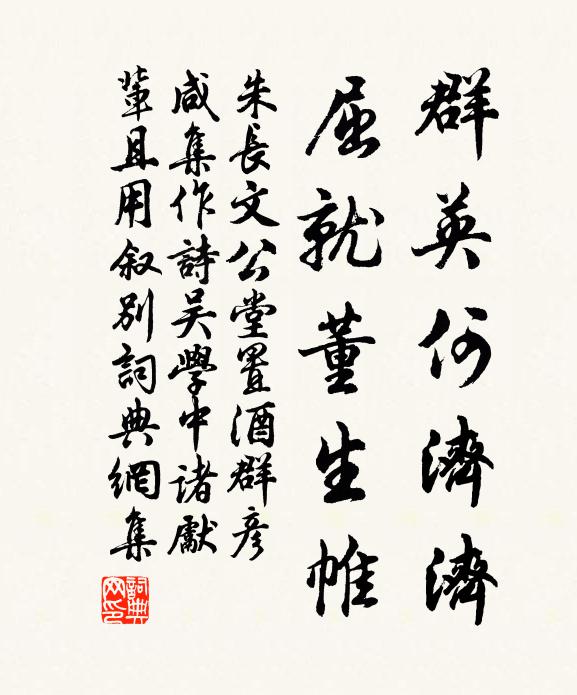 群英何濟濟
屈就董生帷
朱長文公堂置酒群彥
咸集作詩吴學中諸獻
輩且用叙別詞典網集
詞典網印